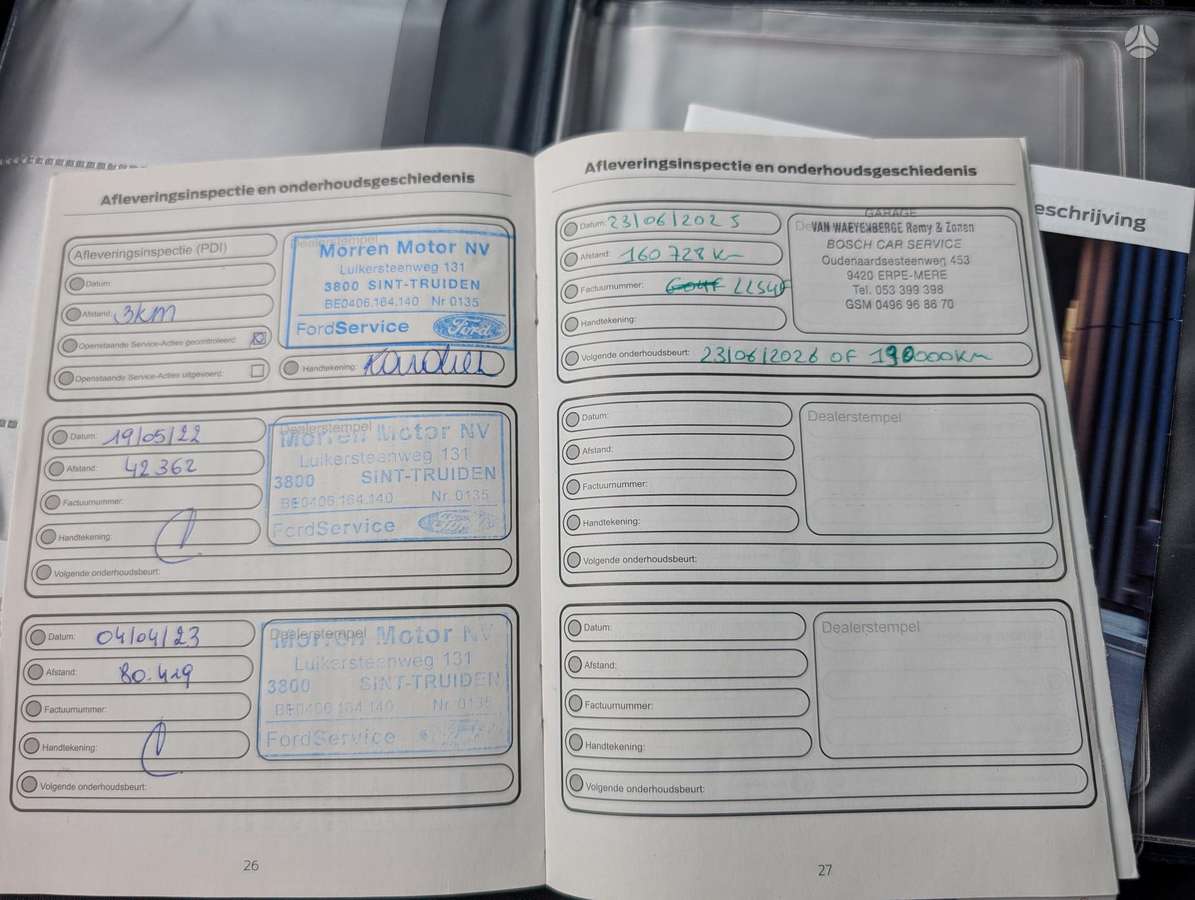 Afleveringsinspectie en onderhoudsgeschiedenis
Afleveringsinspectie (PDI)
Datum:
Afstand: 3KM
Openstaande Service-Acties gecontroleerd:
Openstaande Service-Acties uitgevoerd:
Dealerstempel
Morren Motor NV
Luikersteenweg 131
3800 SINT-TRUIDEN
BE0406.164.140 Nr 0135
FordService Ford
Handtekening:
Datum: 19/05/22
Afstand: 42362
Factuurnummer:
Handtekening:
Dealerstempel
Morren Motor NV
Luikersteenweg 131
3800 SINT-TRUIDEN
BE0406.164.140 Nr 0135
FordService Ford
Volgende onderhoudsbeurt:
Datum: 04/04/23
Afstand: 80.419
Factuurnummer:
Handtekening:
Dealerstempel
Morren Motor NV
Luikersteenweg 131
3800 SINT-TRUIDEN
BE0406.164.140 Nr 0135
FordService
Volgende onderhoudsbeurt:
26
Afleveringsinspectie en onderhoudsgeschiedenis
Datum: 23/06/2025
Afstand: 160 728 K
Factuurnummer:
Handtekening:
GARAGE
VAN WAEYENBERGE Remy & Zonen
BOSCH CAR SERVICE
Oudenaardsesteenweg 453
9420 ERPE-MERE
Tel. 053 399 398
GSM 0496 96 88 70
Volgende onderhoudsbeurt: 23/06/2026 OF 190000Km
Datum:
Afstand:
Factuurnummer:
Handtekening:
Dealerstempel
Volgende onderhoudsbeurt:
Datum:
Afstand:
Factuurnummer:
Handtekening:
Dealerstempel
Volgende onderhoudsbeurt:
27
eschrijving